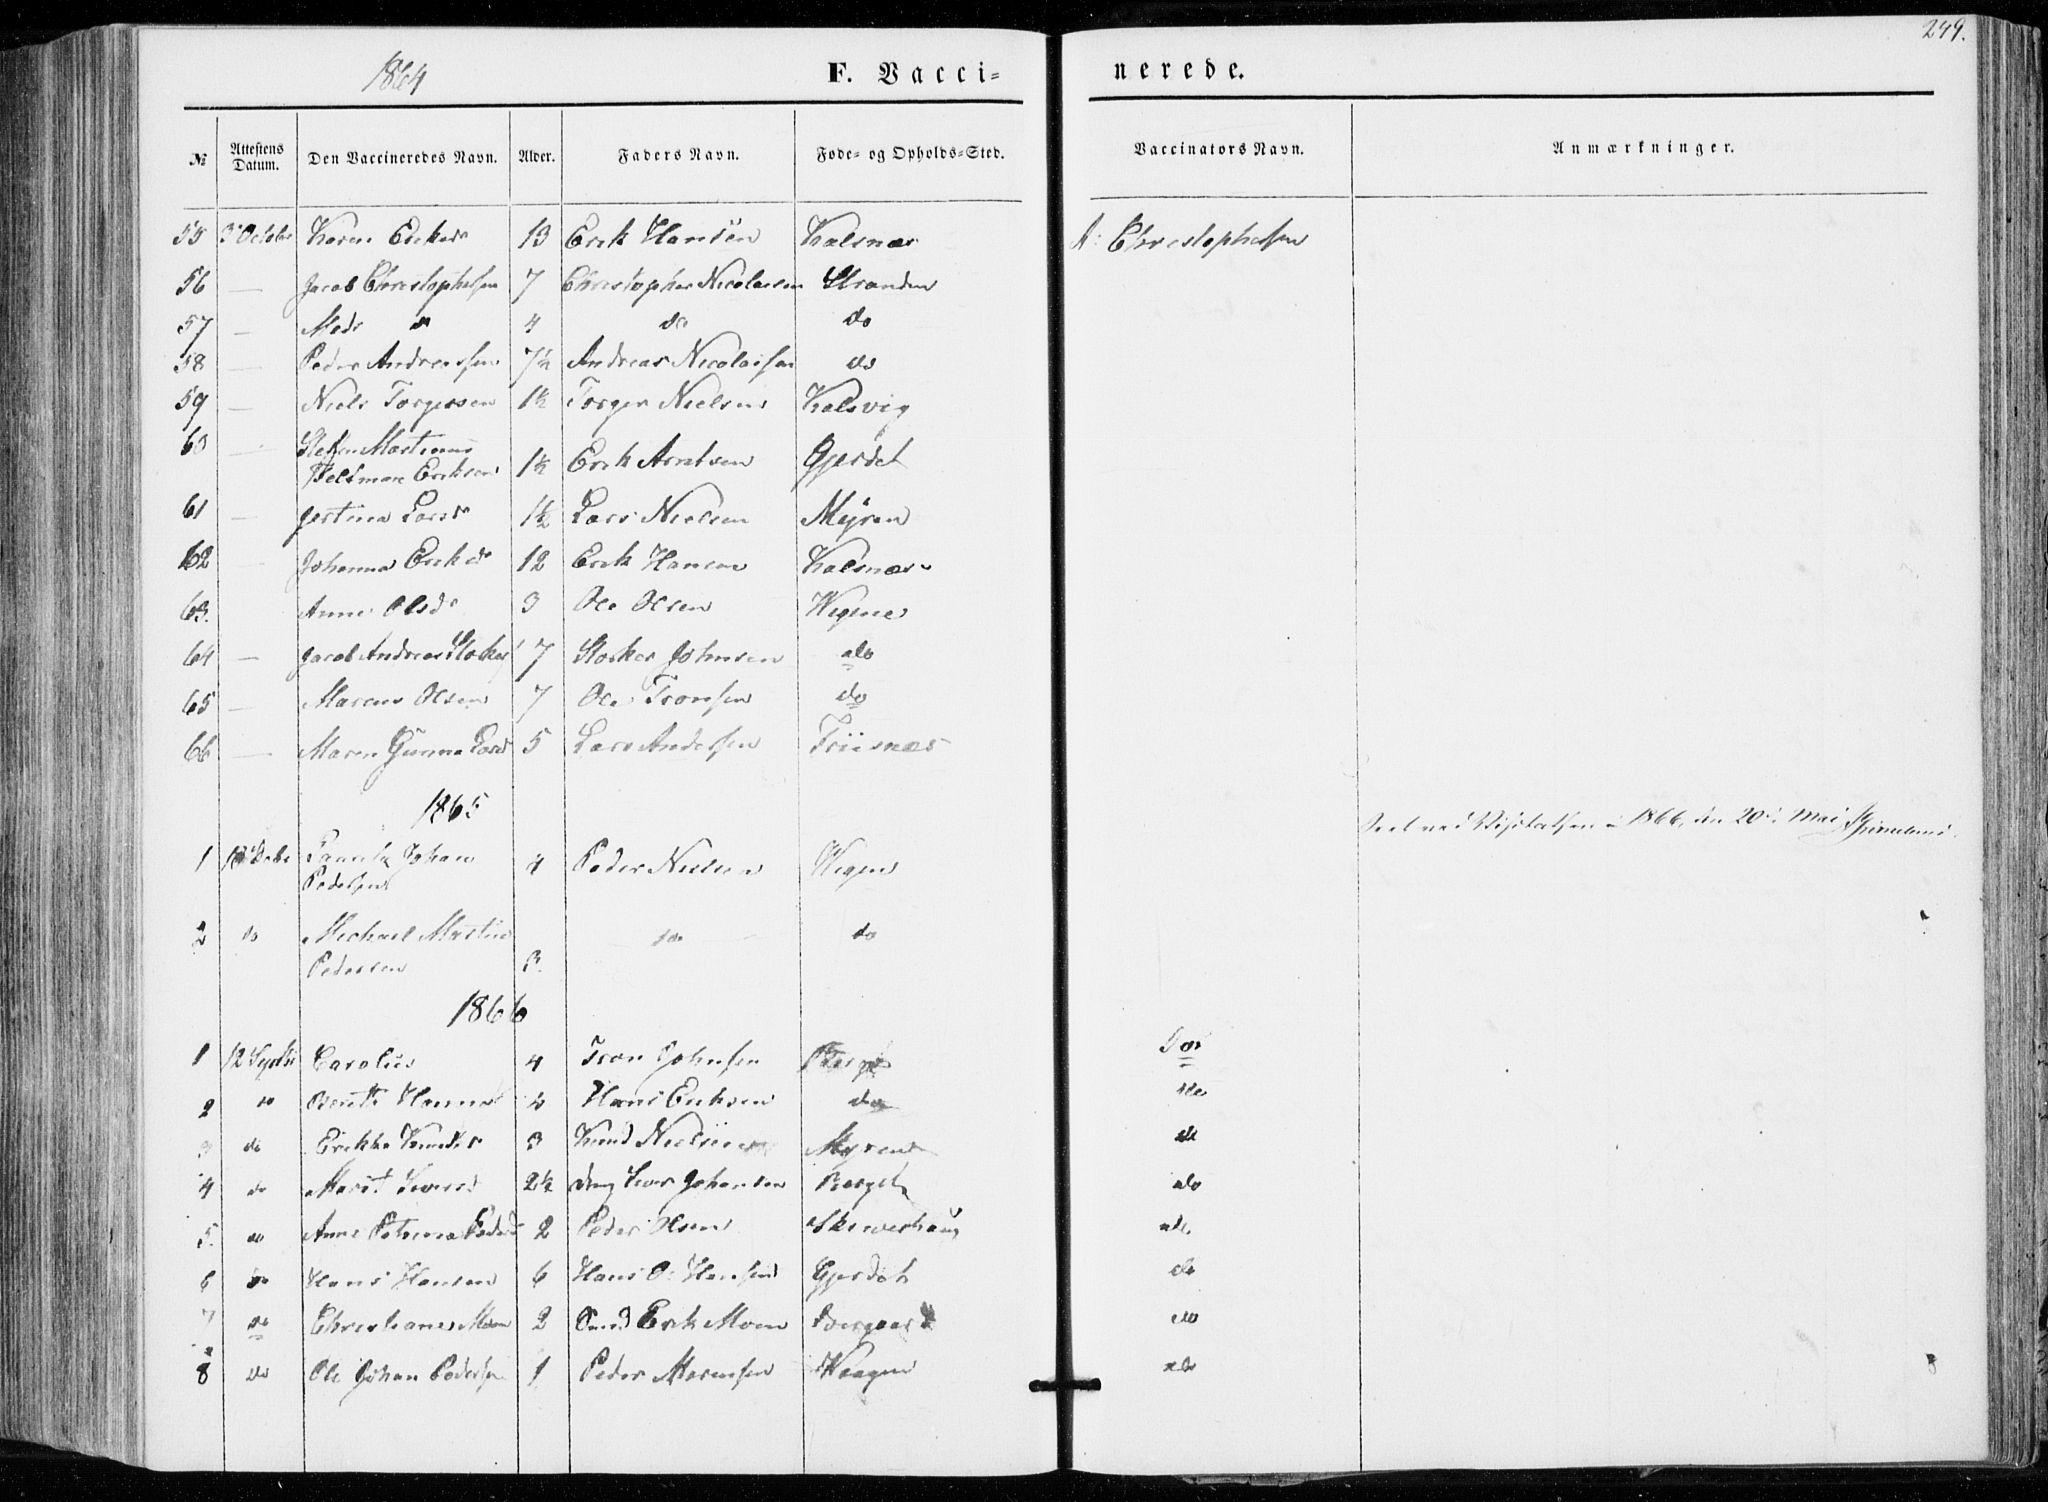 249.
1864 F. Vacci- nerede.
№ Attestens Datum. Den Vaccineredes Navn. Alder. Faders Navn. Føde- og Opholds-Sted. Vaccinators Navn. Anmærkninger.
55 3 Octbr Karen Eriksd 13 Erik Hansen Kalsnæs A: Christophersen
56 — Jacob Christophersen 7 Christopher Nicolaisen Stranden
57 — Mads do 4 do do
58 — Peder Andreassen 7½ Andreas Nicolaisen do
59 — Niels Torgersen 1½ Torger Nielsen Kalsvig
60 — Stefen Martinus
Eriksen 1½ Erik Arntsen Gjerdet
61 — Larsd 1½ Lars Nielsen Myren
62 Johanna Eriksd 12 Erik Hansen Kalsnæs
63. Anne Olsd 3 Ole Olsen
64 — Jacob Andreas 7 Johnsen do
65 — Marcus Olsen 7 Ole Tronsen do
66 — Maren Gunna Larsd 5 Lars Andersen
1865
1866, den 20de Mai
1 Johan
Pedersen 4 Peder Nielsen
2 do Michael Martin do do
Pedersen 3.
1866
1 12 Carolus 4 Tron Johnsen do
2 do Berith Hanna 4 Hans Eriksen do do
3 do Knudsd 3 Knud Nielsen Myren do
4 do Marit Iversd 2½ Iver Johansen Berget do
5. do Anne Petrina Pedersd 2 Peder Olsen do
6 do Hans Hansen 6 Hans O: Hansen Gjerdet do
7 do Christiane Moen 2 Erik Moen do
8 do Ole Johan Pedersen 1 Peder do